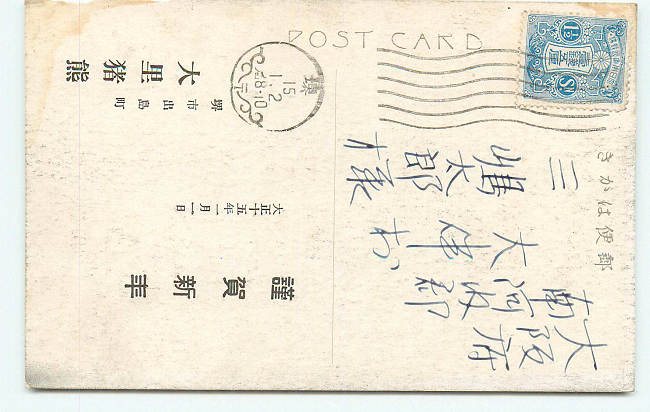 POST CARD
きかは便郵
大阪府
南河内郡
大伴村
三
嶋太郎様
謹賀新年
大正十五年一月一日
堺市出島町
大里猪熊
堺
15.1.2
8-10
1½ Sn